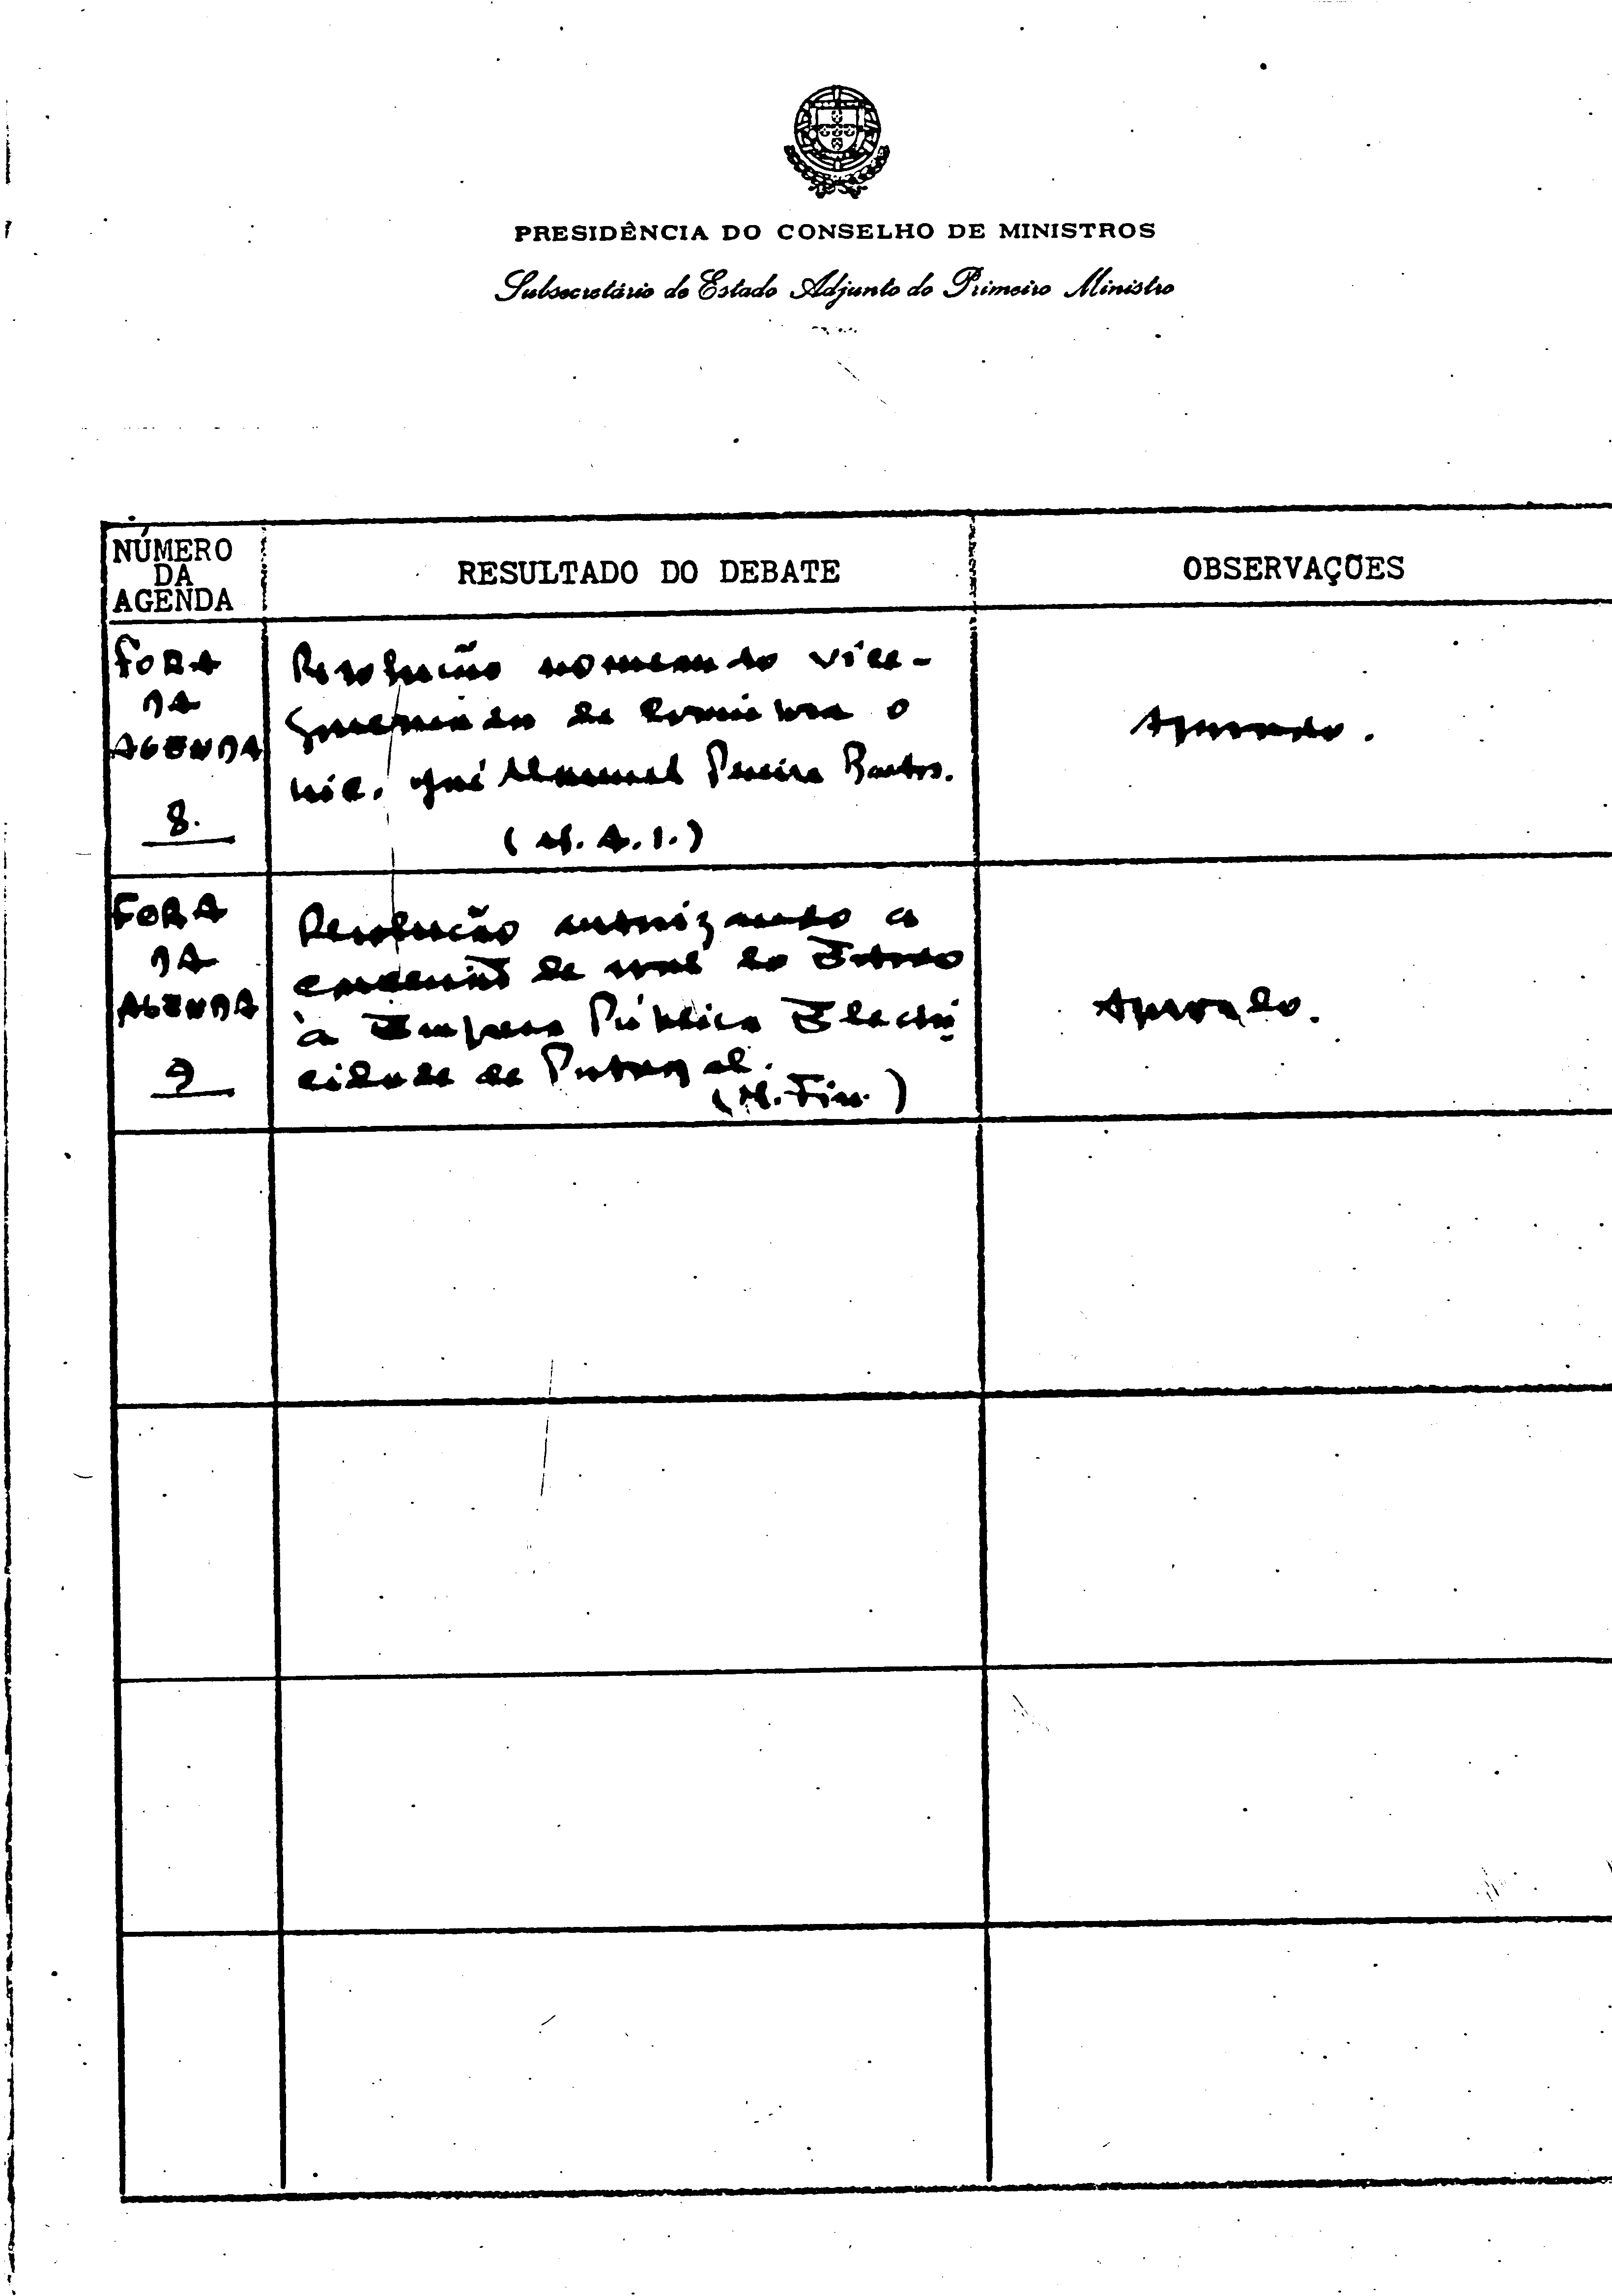 PRESIDÊNCIA DO CONSELHO DE MINISTROS
Subsecretário de Estado Adjunto do Primeiro Ministro
NÚMERO
DA
AGENDA
RESULTADO DO DEBATE
OBSERVAÇÕES
FORA
DA
AGENDA
8.
Resolução nomeando vice-
governador de Coimbra o
lic. José Manuel Pereira Bastos.
(M.A.I.)
Aprovado.
FORA
DA
AGENDA
9
Resolução autorizando a
concessão de aval do Estado
à Empresa Pública Electri
cidade de Portugal.
(M. Fin.)
Aprovado.